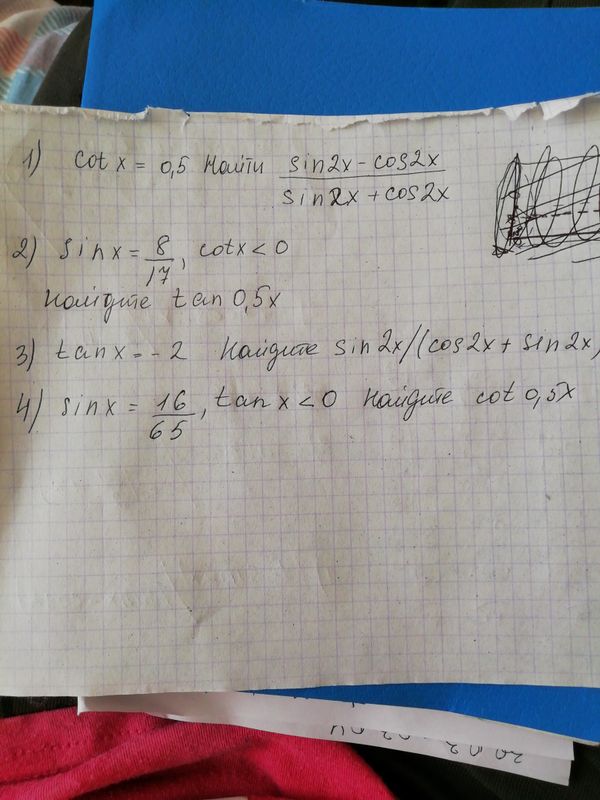 1) cot x = 0,5 Найти sin2x - cos2x / sin2x + cos2x
2) sin x = 8/17, cot x < 0
Найдите tan 0,5x
3) tan x = - 2 Найдите sin 2x/(cos2x + sin 2x)
4) sin x = 16/65, tan x < 0 Найдите cot 0,5x